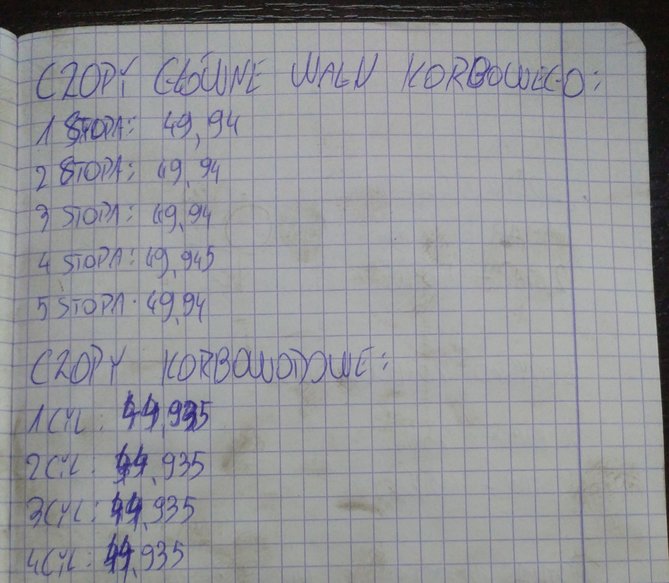 CZOPY GŁÓWNE WAŁU KORBOWEGO:
1 STOPA: 49,94
2 STOPA: 49,94
3 STOPA: 49,94
4 STOPA: 49,945
5 STOPA: 49,94
CZOPY KORBOWODOWE:
1 CYL: 44,935
2 CYL: 44,935
3 CYL: 44,935
4 CYL: 44,935